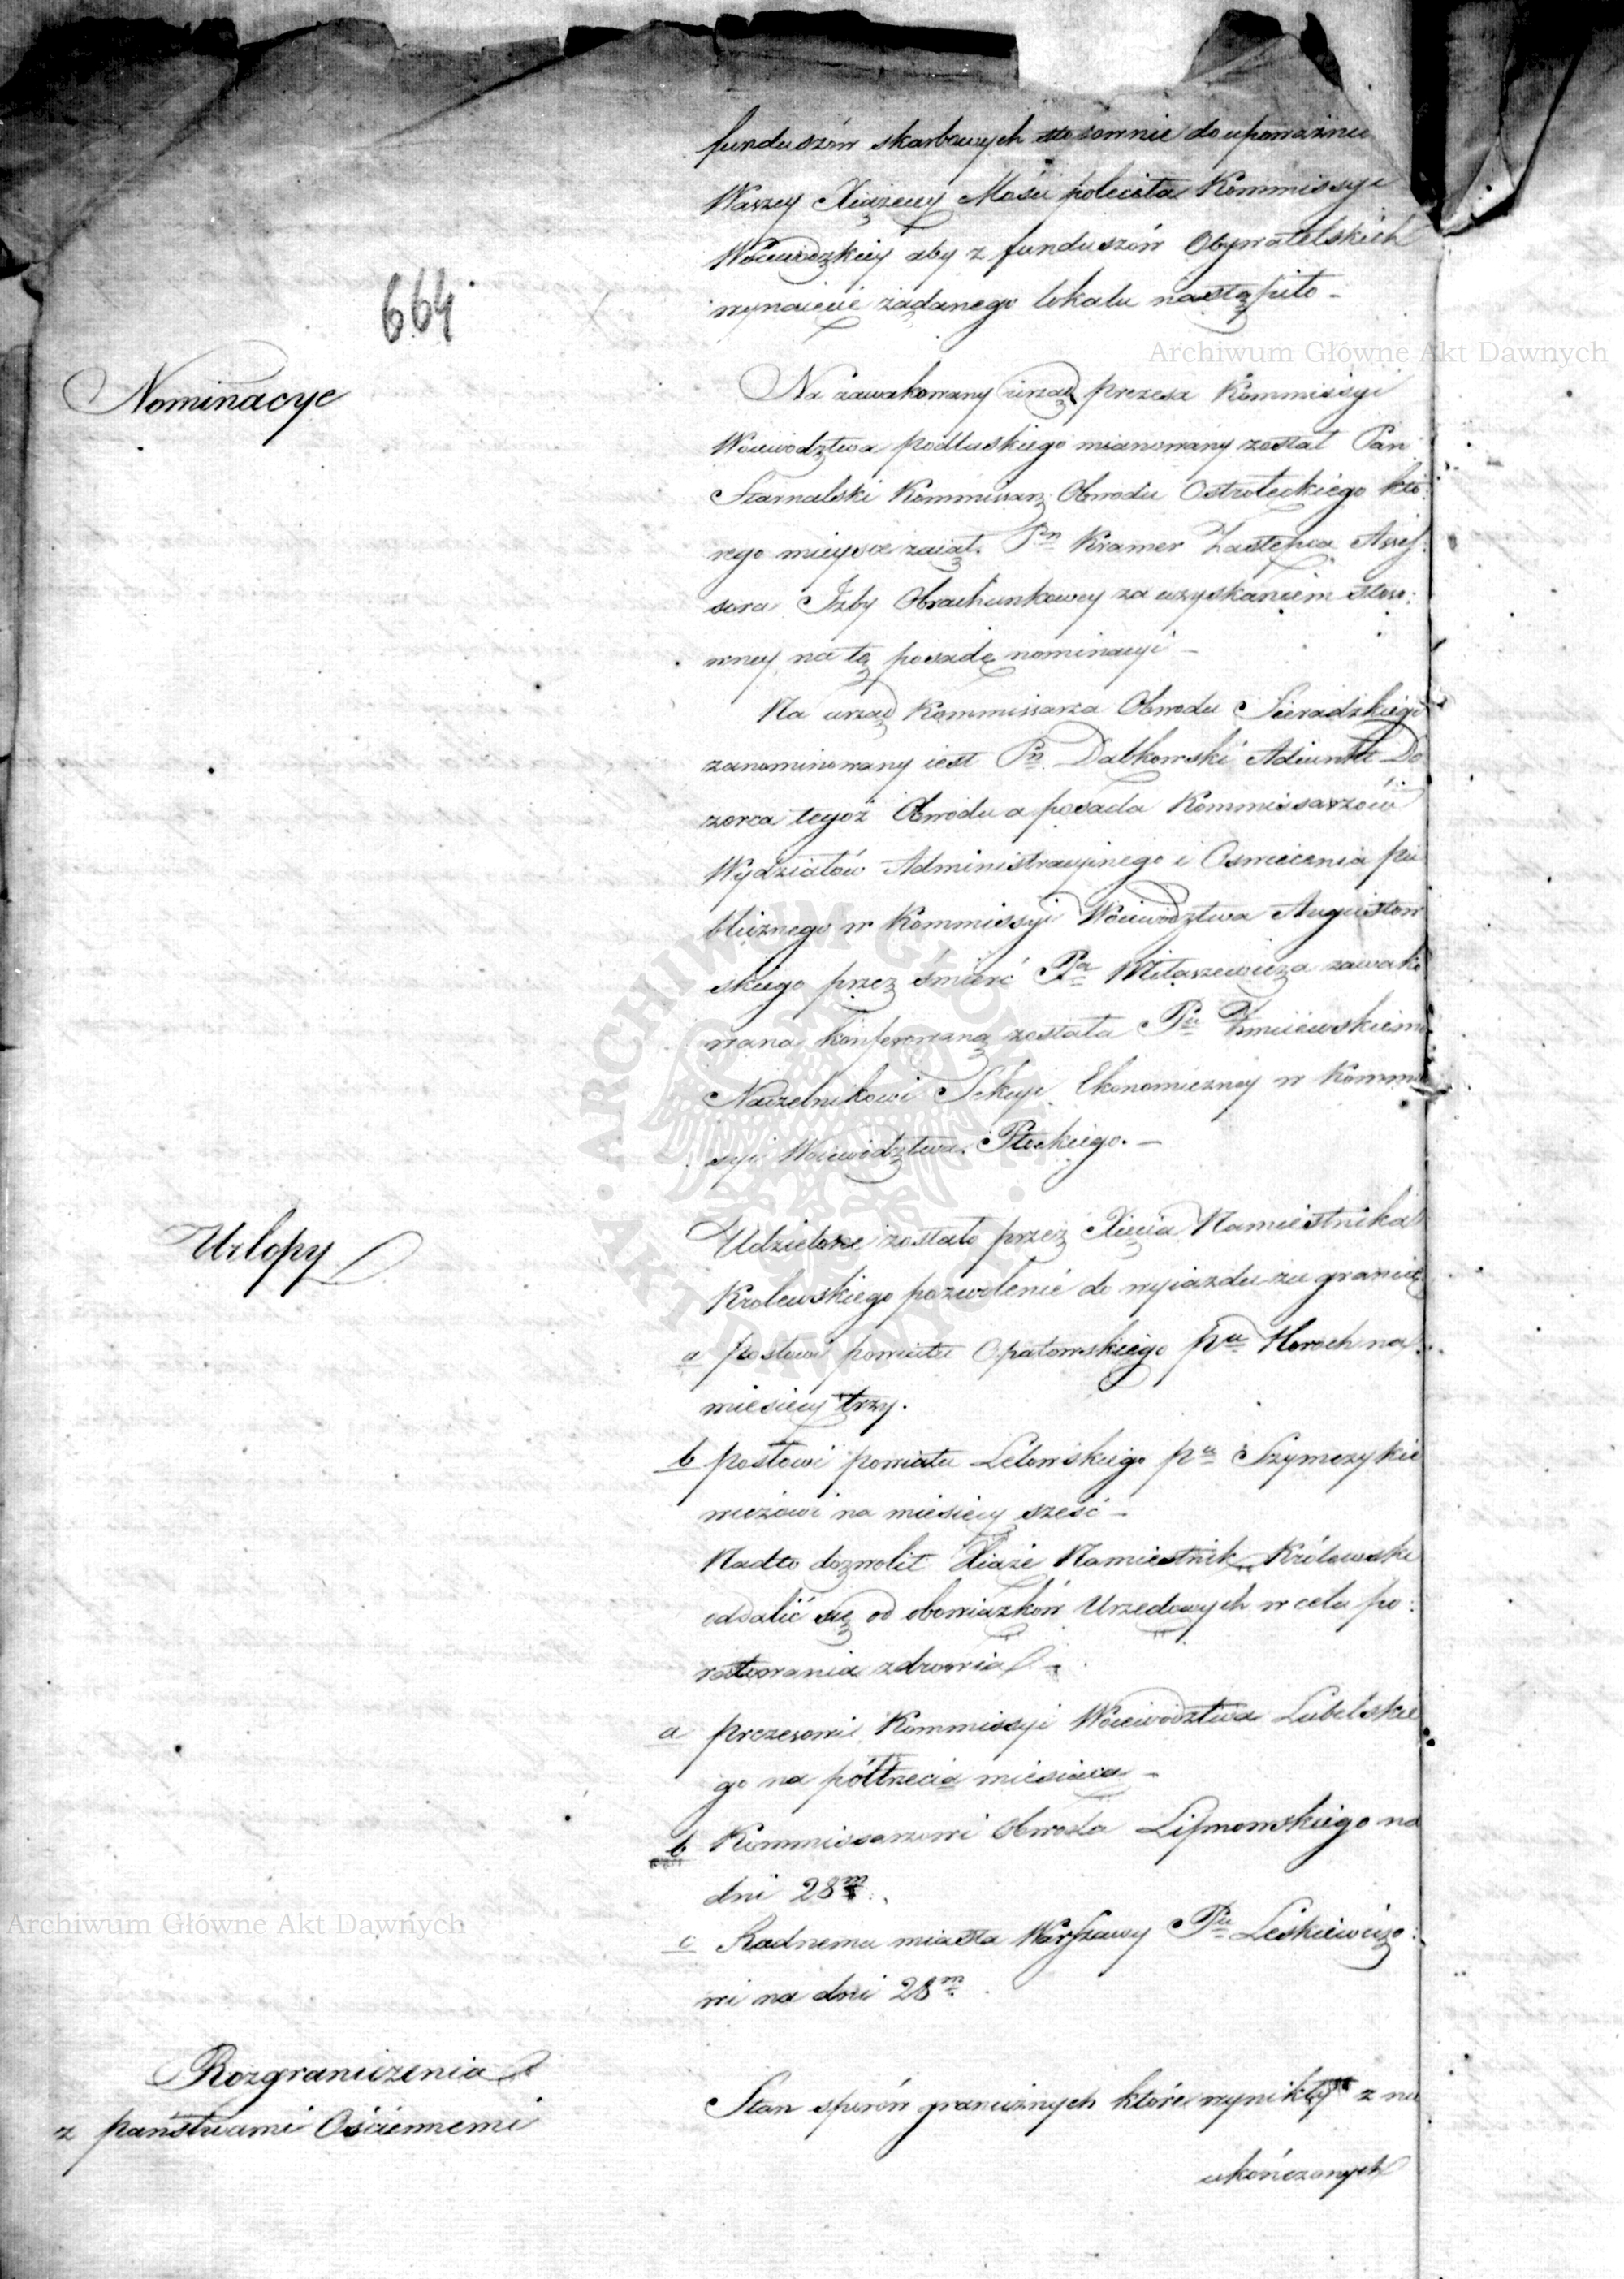 funduszów skarbowych stosownie do upoważnie
Waszey Xiążęcey Mości poleciła Kommissyi
Woiewódzkiey aby z funduszów Obywatelskich
wynaięcie żądanego lokalu nastąpiło –
664
Archiwum Główne Akt Dawnych
Nominacye
Na zawakowany urząd prezesa Kommissyi
Woiewództwa podlaskiego mianowany został Pan
Kommissarz Obwodu Ostrołęckiego któ:
rego mieysce zaiął Pn Kramer Zastępca Asses:
sora Izby Obrachunkowey za uzyskaniem stoso:
wney na tę posadę nominacyi –
Na urząd Kommissarza Obwodu Sieradzkiego
zanominowany iest Pn Dąbkowski Adiunkt Do
zorca tegoż Obwodu a posada Kommissarzów
Wydziałów Administracyinego i Oswiecenia pu
blicznego w Kommissyi Woiewództwa Augustow
skiego przez śmierć Pa Miłaszewicza zawako
wana konferowaną została Pu Żmiiewskiemu
Naczelnikowi Sekcyi Ekonomiczney w Kommis
syi Woiewództwa Płockiego. –
Urlopy
Udzielone zostało przez Xięcia Namiestnika
Krolewskiego pozwolenie do wyiazdu za granicę
a posłowi powiatu Opatowskiego pu Horoch na
miesięcy trzy.
b posłowi powiatu Lelowskiego pu Szymczykie
wiczowi na miesięcy sześć –
Nadto dozwolił Xiąże Namiestnik Królewski
oddalić się od obowiązków Urzędowych w celu po:
ratowania zdrowia –
a prezesowi Kommissyi Woiewództwa Lubelskie
go na półtrzecia miesiąca –
b Kommissarzowi Obwodu Lipnowskiego na
dni 28m
Archiwum Główne Akt Dawnych
c Radnemu miasta Warszawy Pu Leskiewiczo:
wi na dni 28m
Rozgraniczenia
z państwami Ościennemi
Stan sporów granicznych które wynikły z nie
ukończonych
ARCHIWUM GŁÓWNE AKT DAWNYCH